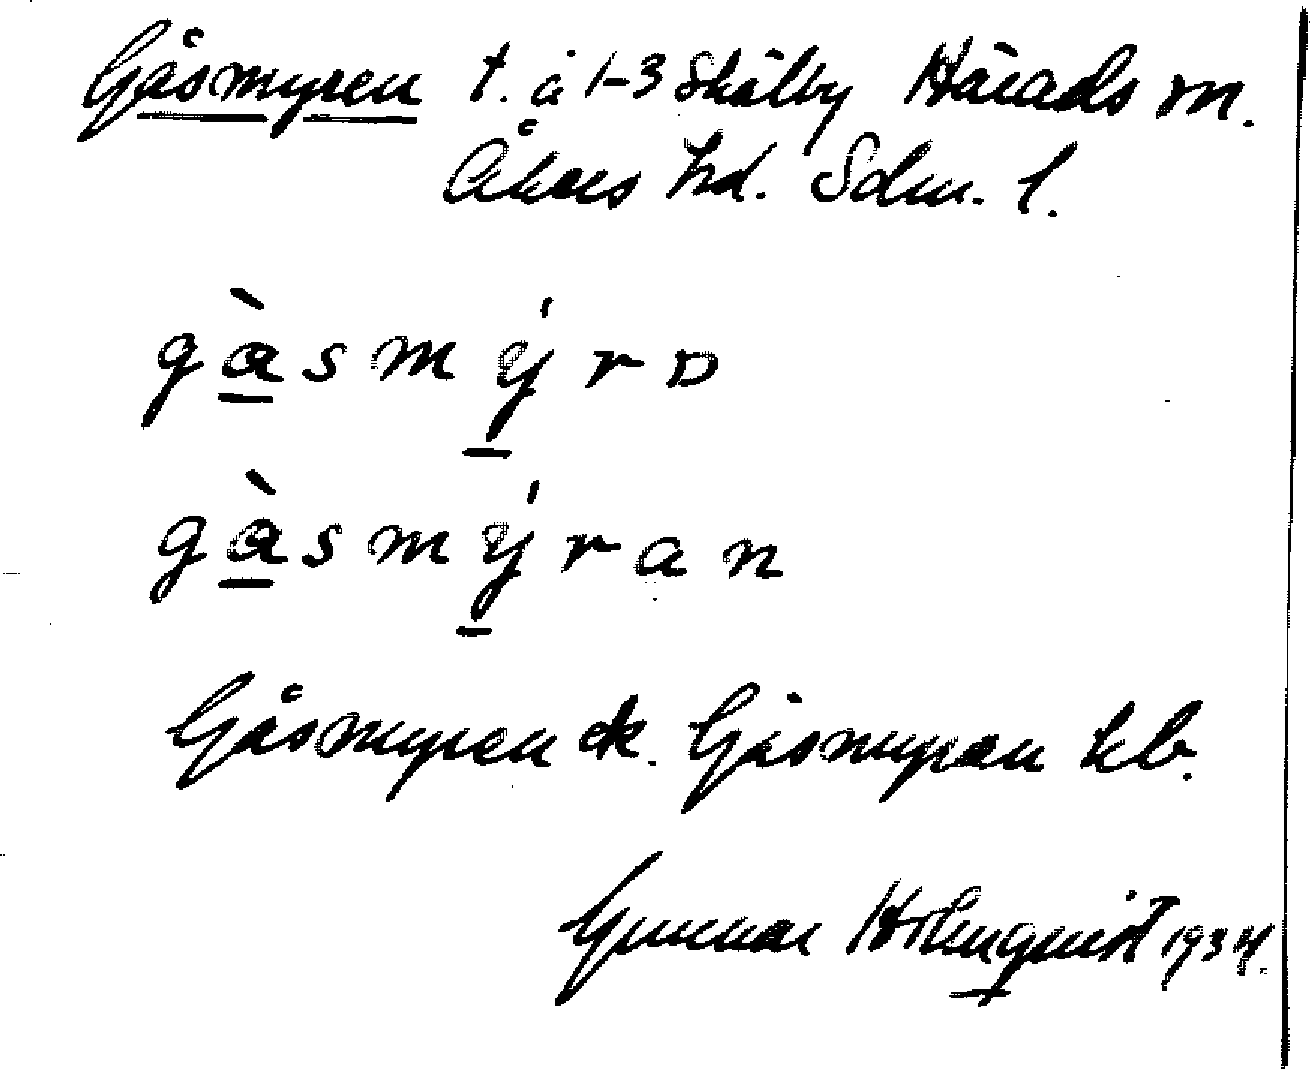 Gåsmyren t. å 1-3 Skälby Härads sn.
Åkers hd. Sdm. l.
gàsmýrɒ
gàsmýran
Gåsmyren ek. Gåsmyran kb.
Gunnar Holmquist 1934.